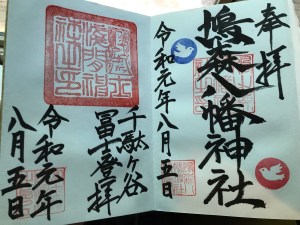 奉拝
鳩森八幡神社
令和元年八月五日
千駄ヶ谷
冨士登拝
令和元年
八月五日